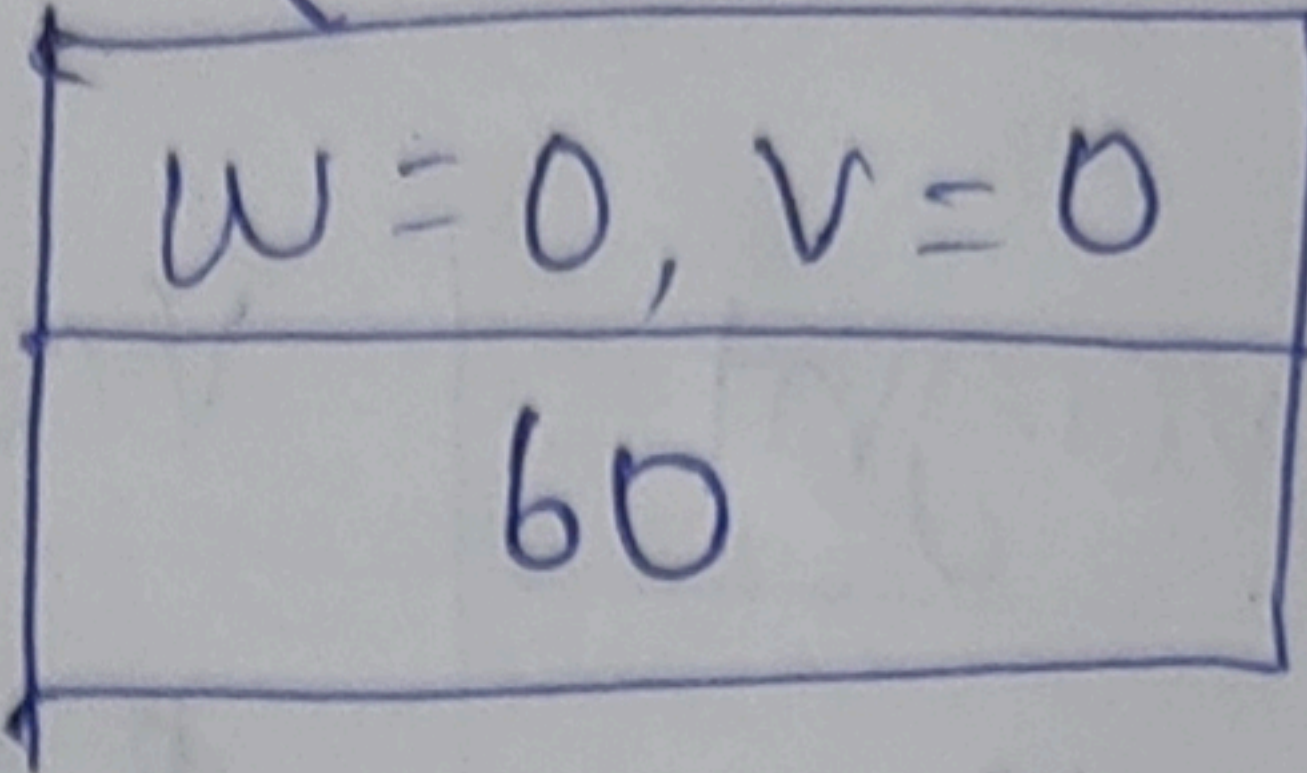 W = 0, V = 0
60